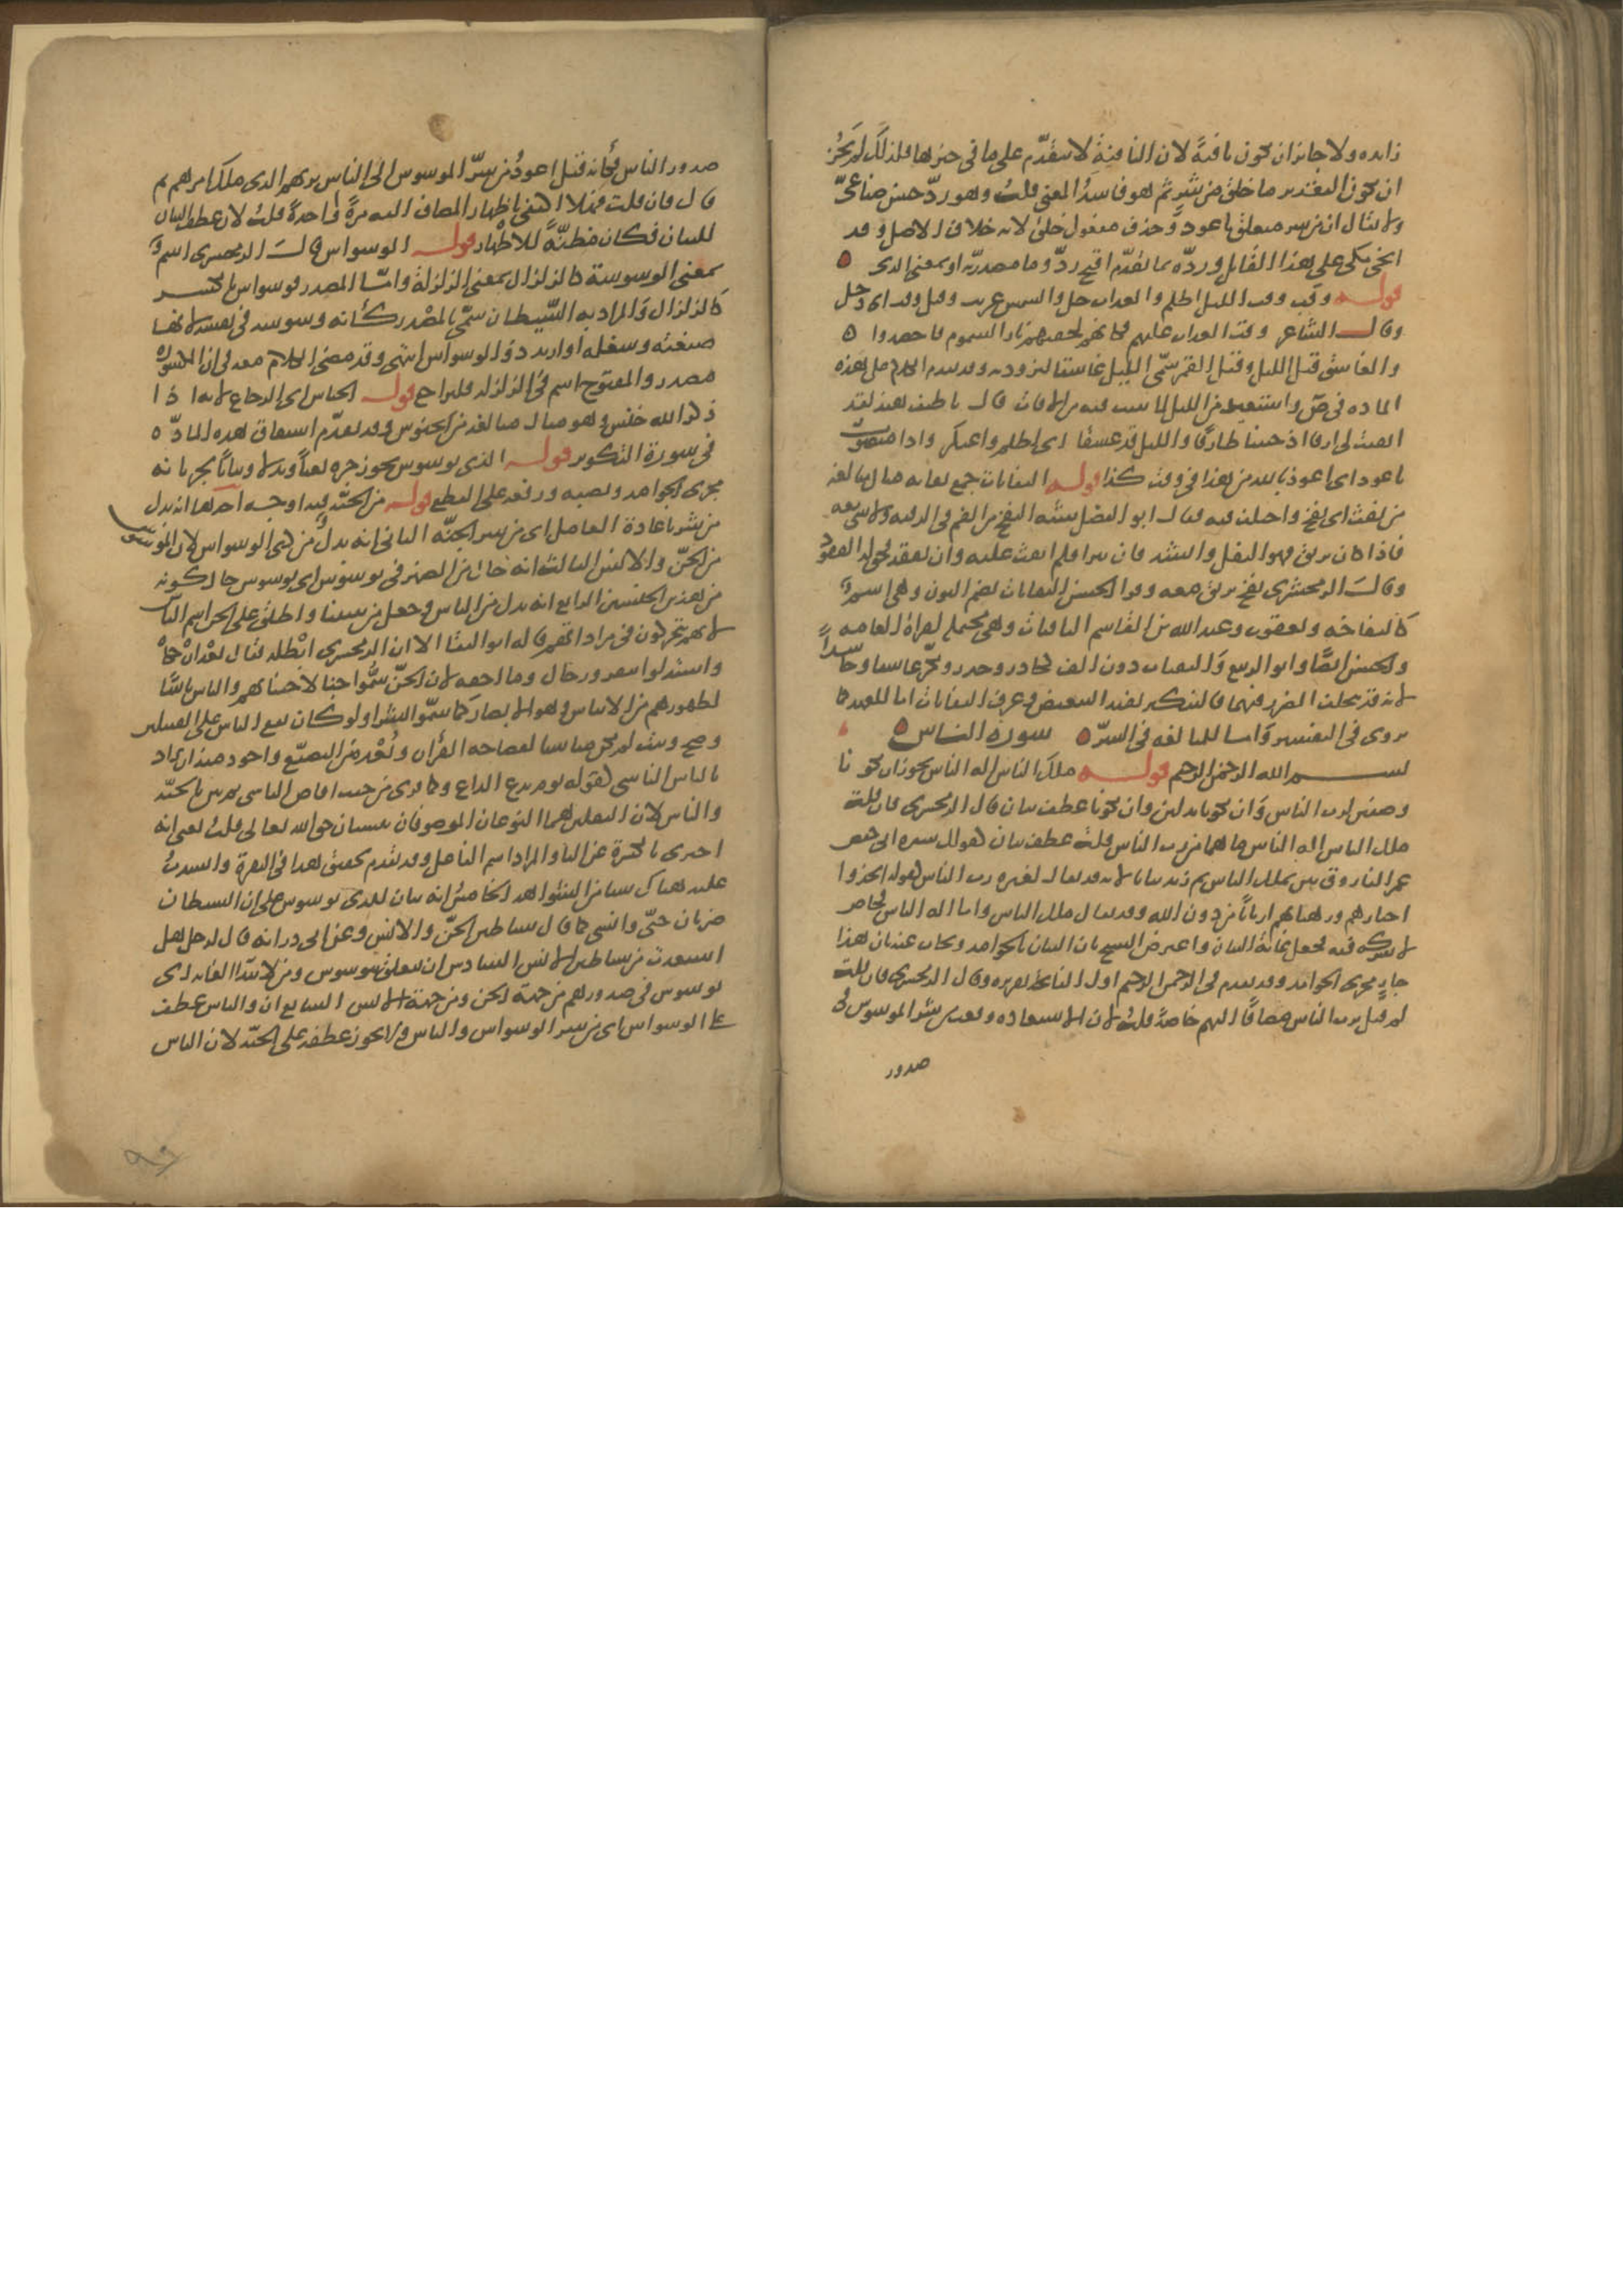 زايده ولا جايز ان تكون نافية لان النافية لا يتقدم عليها ما في حيزها فلذلك لم يجز
ان يكون التقدير ما خلق من شر ثم هو فاسد المعنى قلت وهو رد حسن صناعي
ولا يقال ان من شر متعلق باعوذ وحذف مفعول خلق لانه خلاف الاصل وقد
انحى مكي على هذا القايل ورده بما تقدم اقبح رد وما مصدرية او بمعنى الذي
قوله وقب وقب الليل اظلم والعذاب حل والشمس غربت وقيل وقب اي دخل
وقال الشاعر وقب العذاب عليهم فكانهم لحقتهم نار السموم فاحصدوا
والغاسق قيل الليل وقيل القمر سمي الليل غاسقا لبرودته وقد تقدم الكلام على هذه
المادة في ص واستعيذ من الليل لما يبيت فيه من الافات قال يا طيف هند لقد
ابقيت لي ارقا اذ جئتنا طارقا والليل قد غسقا اي اظلم واعتكر واذا منصوب
باعوذ اي اعوذ بالله من هذا في وقت كذا قوله النفاثات جمع نفاثة مثال مبالغة
من نفث اي نفخ واختلف فيه فقال ابو الفضل شبه النفخ من الفم في الرقية ولا شي معه
فاذا كان بريق فهو التفل وانشد فان يبرا فلم انفث عليه وان يفقد فحق له الفقود
وقال الزمخشري نفخ بريق معه وقرا الحسن النفاثات بضم النون وهي اسم
كالنفاخة ويعقوب وعبد الله بن القاسم النافثات وهي محتملة لقراة العامة
والحسن ايضا وابو الربيع والنفثات دون الف كحاذر وحذر ونكر غاسقا وحاسدا
لانه قد يتخلف الضرر فيهما فالتنكير يفيد التبعيض وعرف النفاثات اما للعهد كما
يروى في التفسير واما للمبالغة في الشر سورة الناس
بسم الله الرحمن الرحيم قوله ملك الناس اله الناس يجوز ان يكونا
وصفين لرب الناس وان يكونا بدلين وان يكونا عطف بيان قال الزمخشري فان قلت
ملك الناس اله الناس ما هما من رب الناس قلت عطف بيان كقولك سيرة ابي حفص
عمر الفاروق بين بملك الناس ثم زيد بيانا لانه قد يقال لغيره رب الناس كقوله اتخذوا
احبارهم ورهبانهم اربابا من دون الله وقد يقال ملك الناس واما اله الناس فخاص
لا شركة فيه فجعل غاية البيان واعترض الشيخ بان البيان بالجوامد ويجاب عنه بان هذا
جار مجرى الجوامد وقد تقدم في الرحمن الرحيم اول الفاتحة تقريره وقال الزمخشري فان قلت
لم قيل برب الناس مضافا اليهم خاصة قلت لان الاستعاذة وقعت من شر الموسوس في
صدور
صدور الناس فكانه قيل اعوذ من شر الموسوس الى الناس بربهم الذي ملك امرهم ثم
قال فان قلت فهلا اكتفى باظهار المضاف اليه مرة واحدة قلت لان عطف البيان
للبيان فكان مظنة للاظهار قوله الوسواس قال الزمخشري اسم
بمعنى الوسوسة كالزلزال بمعنى الزلزلة واما المصدر فوسواس بالكسر
كالزلزال والمراد به الشيطان سمي بالمصدر كانه وسوسة في نفسه لانها
صنعته وشغله او اريد ذو الوسواس انتهى وقد مضى الكلام معه في ان المكسور
مصدر والمفتوح اسم في الزلزلة فليراجع قوله الخناس اي الرجاع لانه اذا
ذكر الله خنس وهو مثال مبالغة من الخنوس وقد تقدم اشتقاق هذه المادة
في سورة التكوير قوله الذي يوسوس يجوز جره نعتا وبدلا وبيانا لجريانه
مجرى الجوامد ونصبه ورفعه على القطع قوله من الجنة فيه اوجه احدها انه بدل
من شر باعادة العامل اي من شر الجنة الثاني انه بدل من ذي الوسواس لان الموسوس
من الجن والانس الثالث انه حال من الضمير في يوسوس اي يوسوس حال كونه
من هذين الجنسين الرابع انه بدل من الناس وجعل من تبيينا واطلق على الجن اسم الناس
لانهم يتحركون في مراداتهم قاله ابو البقا الا ان الزمخشري ابطله فقال بعد ان حكاه
واستدلوا بنفر ورجال وما احقه لان الجن سموا جنا لاجتنانهم والناس ناسا
لظهورهم من الايناس وهو الابصار كما سموا بشرا ولو كان يقع الناس على القبيلين
وصح وثبت لم يكن مناسبا لفصاحة القرآن وبعده من التصنع واجود منه ان يراد
بالناس الناسي كقوله يوم يدع الداع وكما قرئ من حيث افاض الناسي ثم بين بالجنة
والناس لان الثقلين هما النوعان الموصوفان بنسيان حق الله تعالى قلت يعني انه
اجتزى بالكسرة عن اليا والمراد اسم الفاعل وقد تقدم تحقيق هذا في البقرة وانشدت
عليه هناك شيا من الشواهد الخامس انه بيان للذي يوسوس على ان الشيطان
ضربان جني وانسي كما قال شياطين الجن والانس وعن ابي ذر انه قال لرجل هل
استعذت من شياطين الانس السادس ان يتعلق بيوسوس ومن لابتدا الغاية اي
يوسوس في صدورهم من جهة الجن ومن جهة الانس السابع ان والناس عطف
على الوسواس اي من شر الوسواس والناس ولا يجوز عطفه على الجنة لان الناس